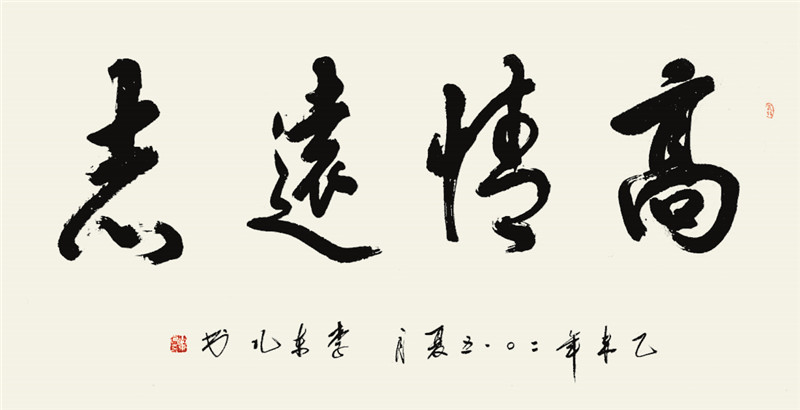 高情遠志
乙未年二〇一五夏月 李东 书